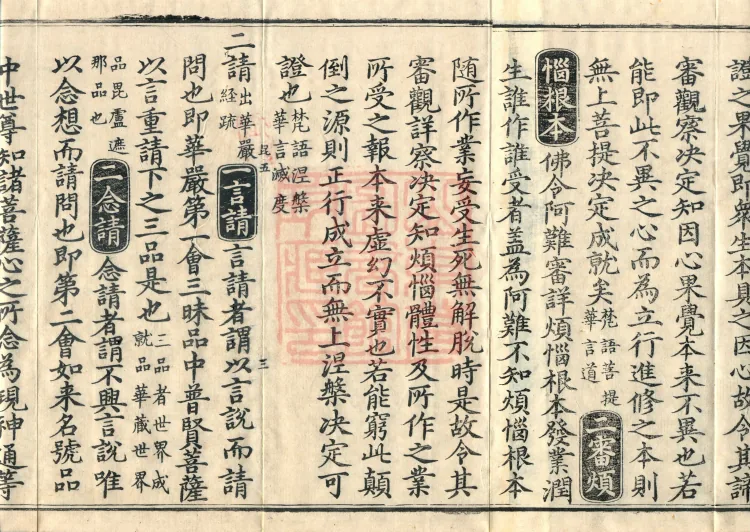 證之果覺即衆生本具之因心故令其諦
審觀察决定知因心果覺本来不異也若
能即此不異之心而為立行進修之本則
無上菩提决定成就矣梵語菩提華言道二審煩
惱根本佛令阿難審詳煩惱根本發業潤
生誰作誰受者盖為阿難不知煩惱根本
随所作業妄受生死無解脫時是故令其
審觀詳察决定知煩惱體性及所作之業
所受之報本来虚幻不實也若能窮此顛
倒之源則正行成立而無上涅槃决定可
證也梵語涅槃華言滅度
二請出華嚴經疏一言請言請者謂以言說而請
問也即華嚴第一會三昧品中普賢菩薩
以言重請下之三品是也三品者世界成就品華蔵世界
品毘盧遮那品也二念請念請者謂不興言說唯
以念想而請問也即第二會如来名號品
中世尊知諸菩薩心之所念為現神通等